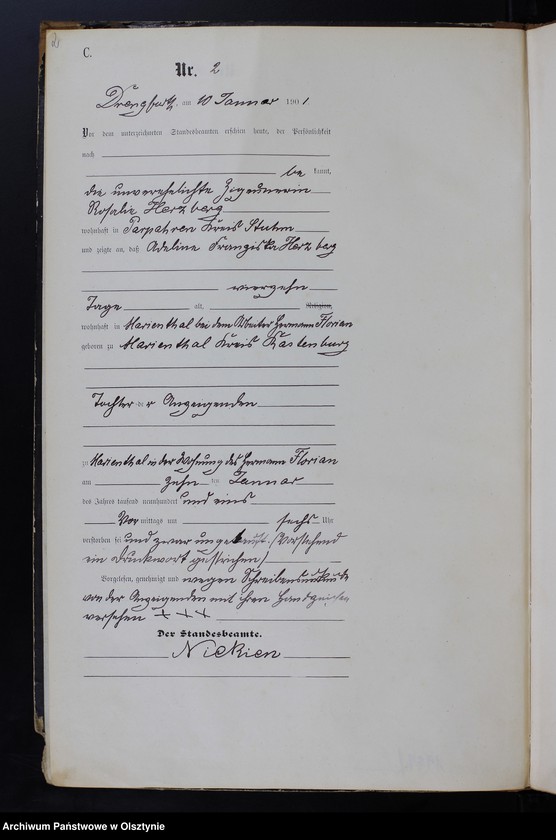 C.
Nr. 2
Drengfurth, am 10 Januar 1901
Vor dem unterzeichneten Standesbeamten erschien heute, der Persönlichkeit
nach
be kannt,
die unverehelichte Zigeunerin
Rosalie Herzberg
wohnhaft in Parpahren Kreis Stuhm
und zeigte an, daß Adeline Franziska Herzberg
vierzehn
Tage alt, Religion,
wohnhaft in Marienthal bei dem Hermann Florian
geboren zu Marienthal Kreis Rastenburg
Tochter der Anzeigenden
zu Marienthal in der Wohnung des Hermann Florian
am zehn ten Januar
des Jahres tausend neunhundert und eins
Vor mittags um sechs Uhr
verstorben sei und zwar ungetauft. (Vorstehend
ein Druckwort gestrichen)
Vorgelesen, genehmigt und wegen Schreibensunkunde
von der Anzeigenden mit ihren Handzeichen
versehen + + +
Der Standesbeamte.
Archiwum Państwowe w Olsztynie